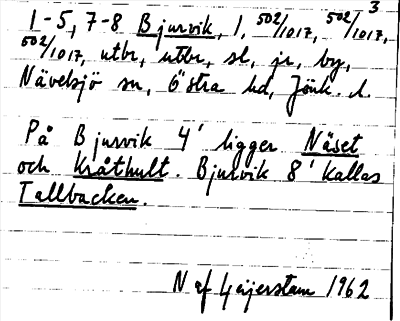 1-5, 7-8 Bjurvik, 1, 502/1017, 502/1017, 3
502/1017, utbr, utbr, sl, jr, by,
Nävelsjö sn, Östra hd, Jönk. l.
På Bjurvik 4' ligger Näset
och Kråthult. Bjurvik 8' kallas
Tallbacken.
N af Geijerstam 1962